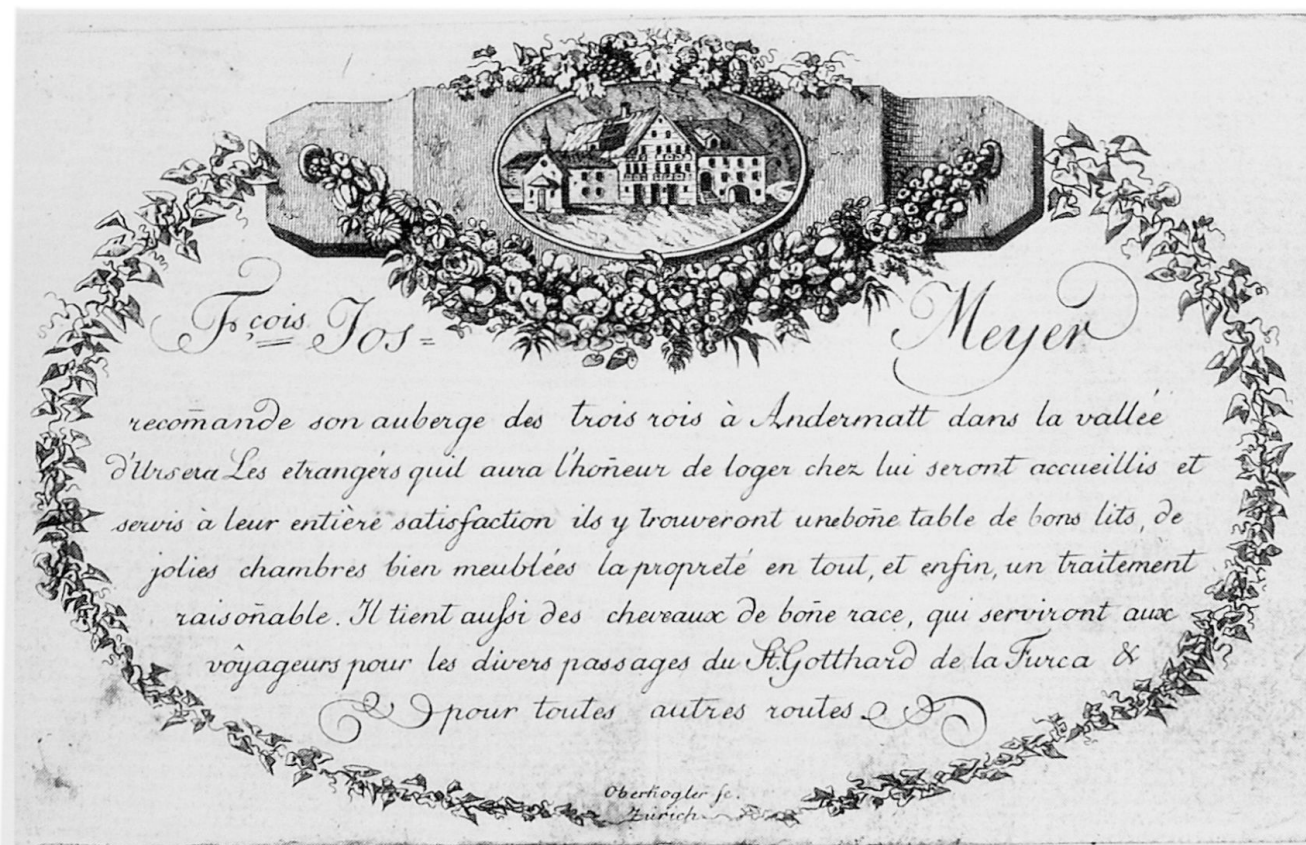 Fçois Jos= Meyer
recom̄ande son auberge des trois rois à Andermatt dans la vallée
d'Ursera Les etrangérs quil aura l'hon̄eur de loger chez lui seront accueillis et
servis à leur entière satisfaction ils y trouveront unebon̄e table de bons lits, de
jolies chambres bien meublées la propreté en tout, et enfin, un traitement
raison̄able. Il tient aufsi des chevaux de bon̄e race, qui serviront aux
vôyageurs pour les divers passages du St. Gotthard de la Furca &
pour toutes autres routes.
Oberkogler sc.
Zürich